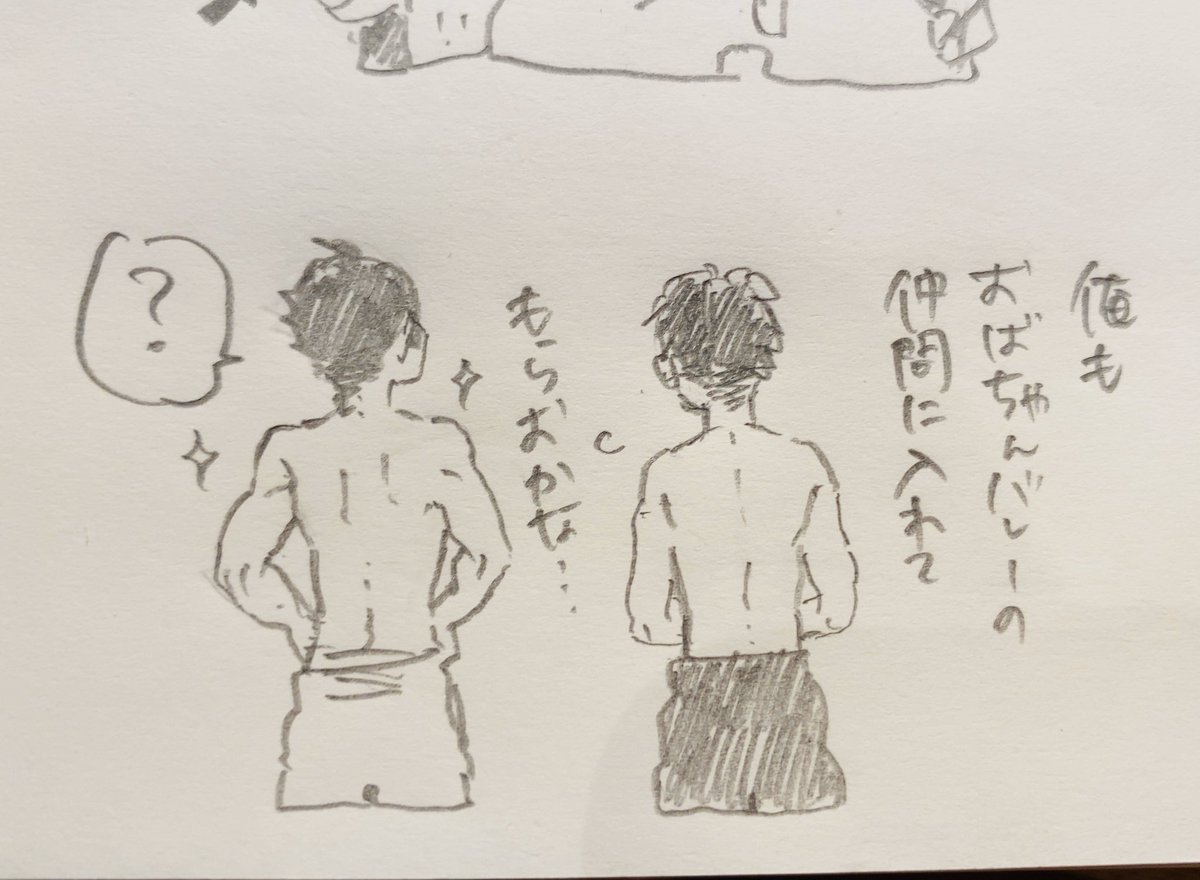 俺も
おばちゃんバレーの
仲間に入れて
もらおかな…
?